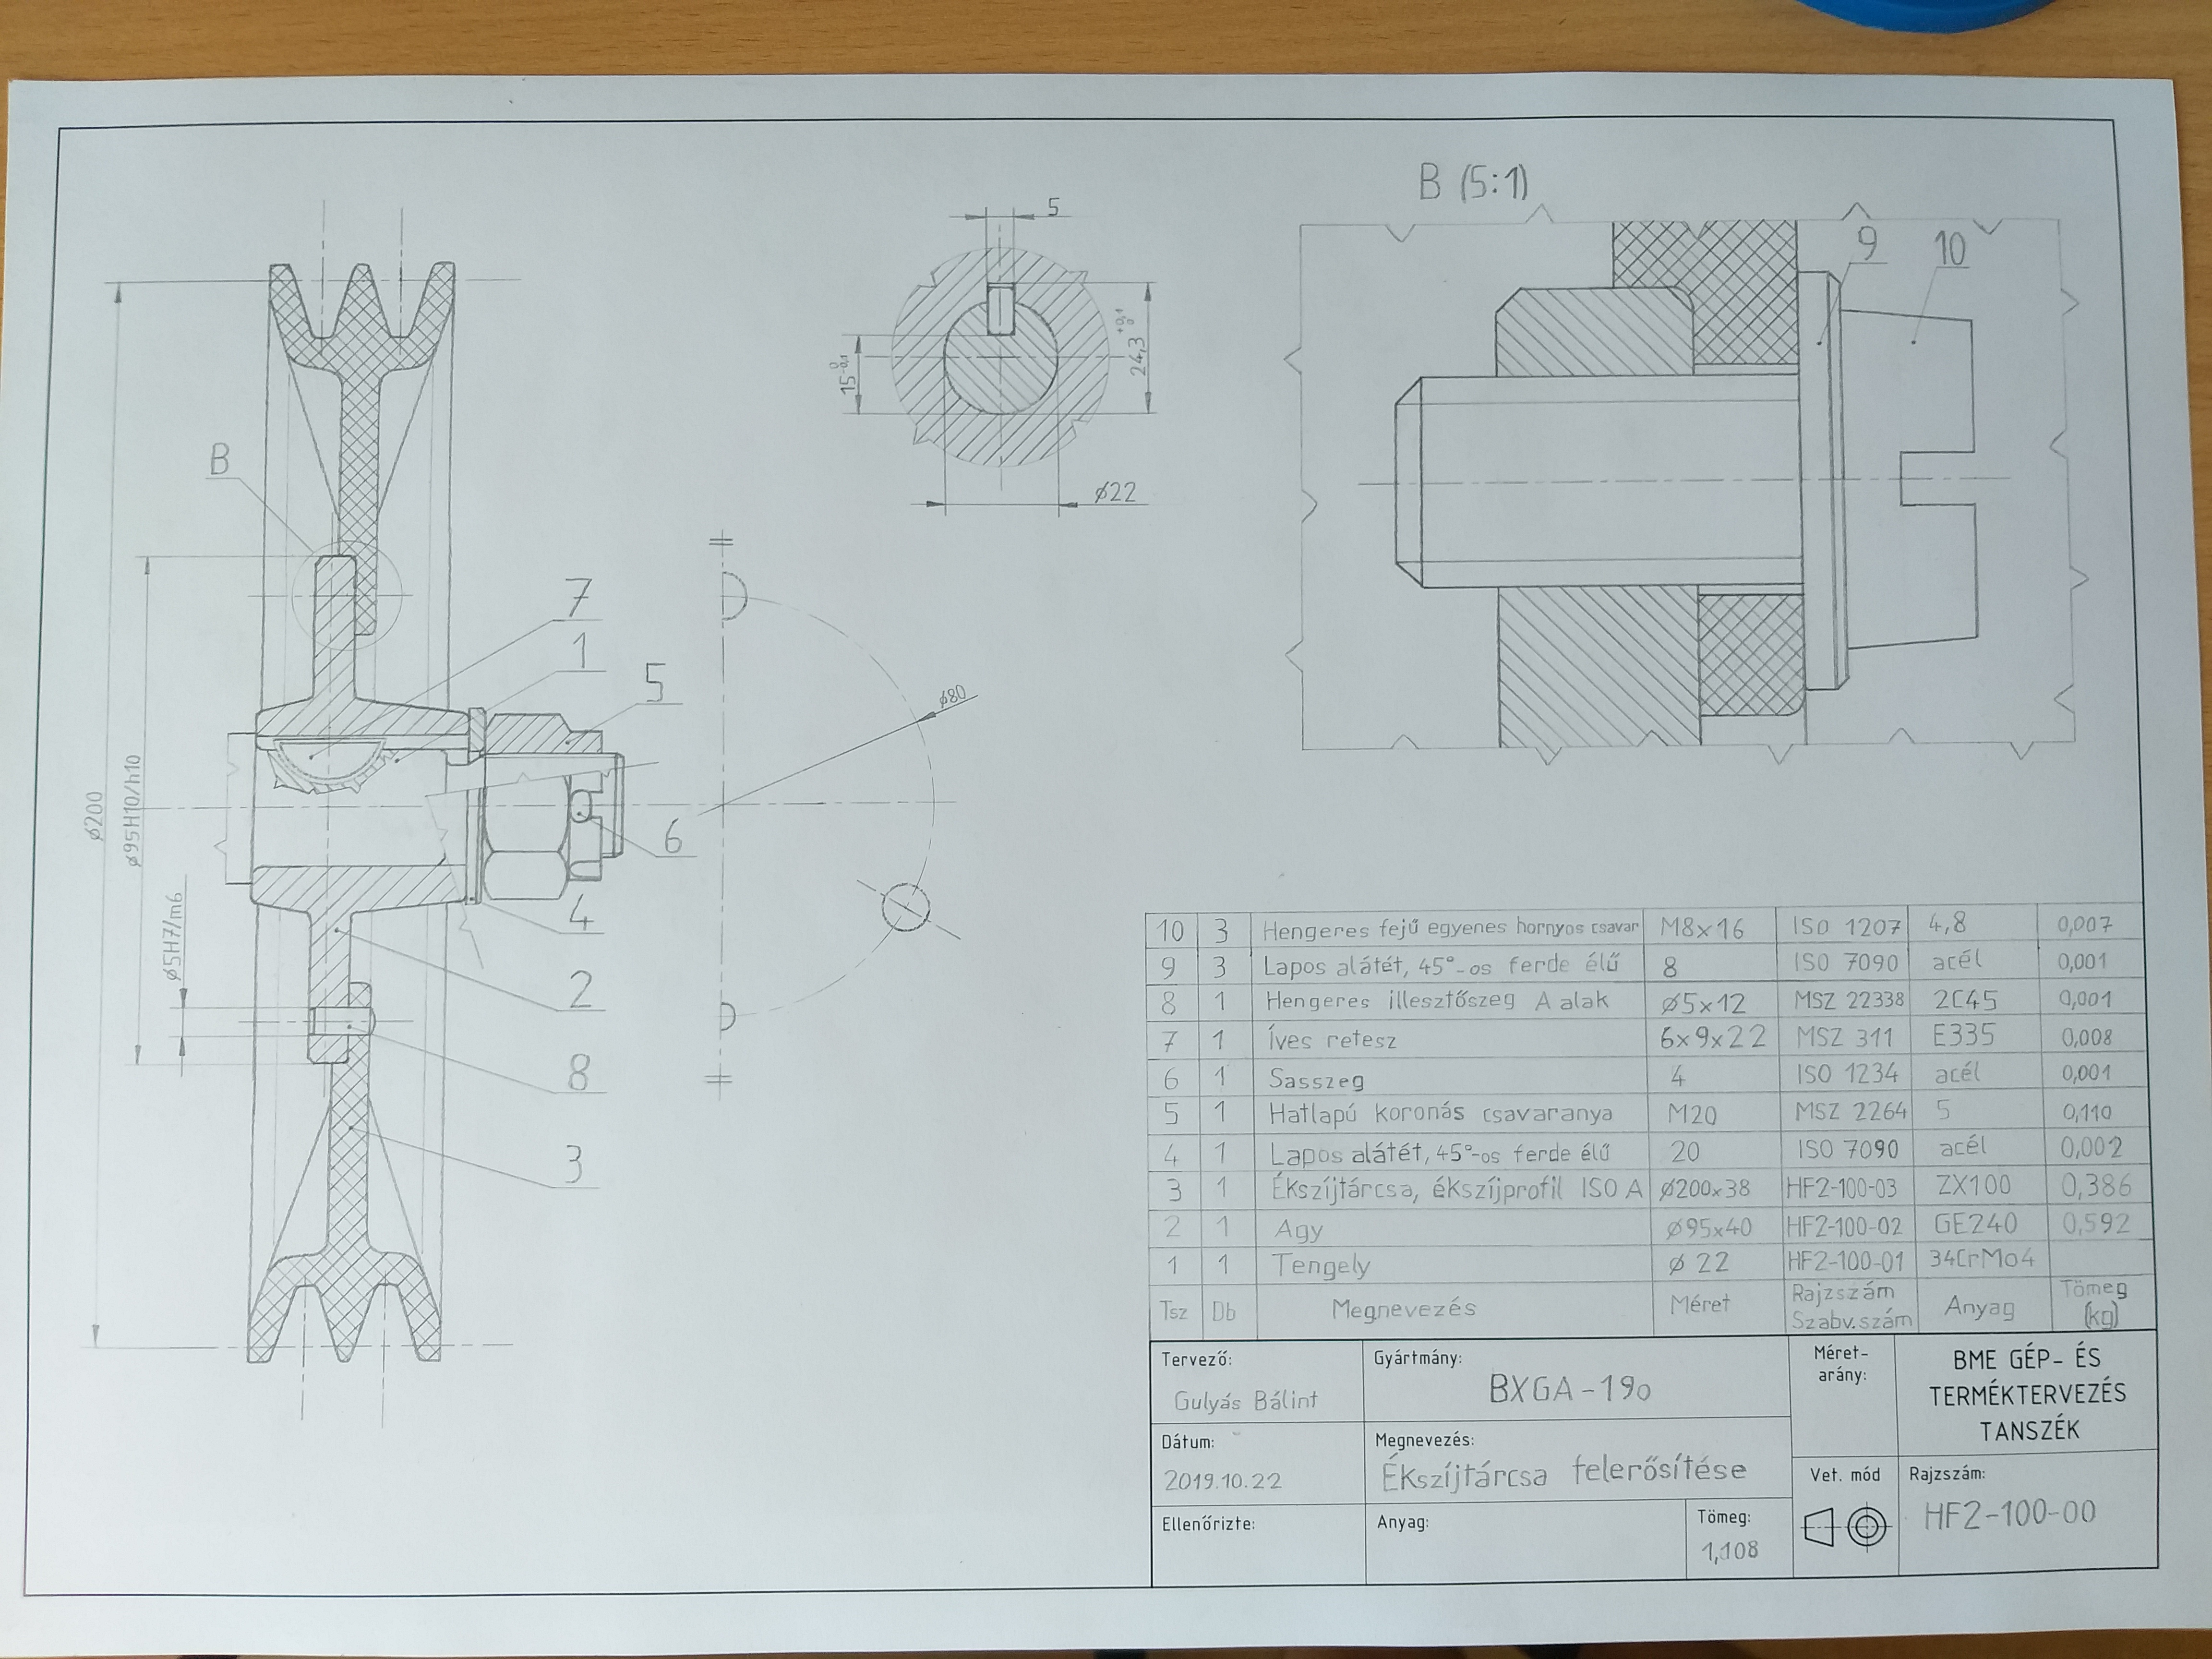 B (5:1)
5
9
10
15 0 -0,1
24,3 +0,1 0
ø22
B
7
1
5
ø80
ø200
ø95H10/h10
6
4
ø5H7/m6
2
8
3
10 3 Hengeres fejű egyenes hornyos csavar M8x16 ISO 1207 4,8 0,007
9 3 Lapos alátét, 45°-os ferde élű 8 ISO 7090 acél 0,001
8 1 Hengeres illesztőszeg A alak ø5x12 MSZ 22338 2C45 0,001
7 1 Íves retesz 6x9x22 MSZ 311 E335 0,008
6 1 Sasszeg 4 ISO 1234 acél 0,001
5 1 Hatlapú koronás csavaranya M20 MSZ 2264 5 0,110
4 1 Lapos alátét, 45°-os ferde élű 20 ISO 7090 acél 0,002
3 1 Ékszíjtárcsa, ékszíjprofil ISO A ø200x38 HF2-100-03 ZX100 0,386
2 1 Agy ø95x40 HF2-100-02 GE240 0,592
1 1 Tengely ø 22 HF2-100-01 34CrMo4
Tsz Db Megnevezés Méret Rajzszám Szabv.szám Anyag Tömeg (kg)
Tervező:
Gulyás Bálint
Gyártmány:
BXGA-190
Méret-
arány:
BME GÉP- ÉS
TERMÉKTERVEZÉS
TANSZÉK
Dátum:
2019.10.22
Megnevezés:
Ékszíjtárcsa felerősítése
Vet. mód
Rajzszám:
HF2-100-00
Ellenőrizte:
Anyag:
Tömeg:
1,108